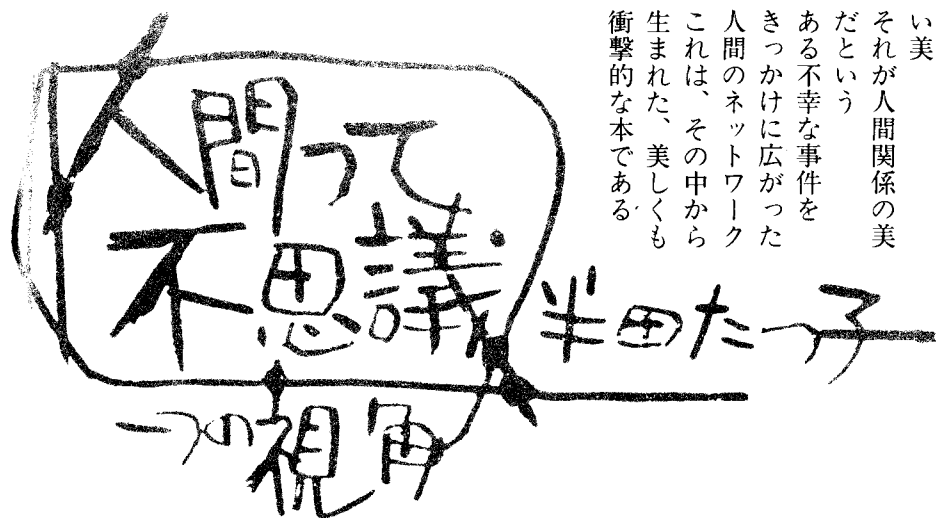 い美
それが人間関係の美
だという
ある不幸な事件を
きっかけに広がった
人間のネットワーク
これは、その中から
生まれた、美しくも
衝撃的な本である
人間って
不思議
半田たつ子
一つの視角